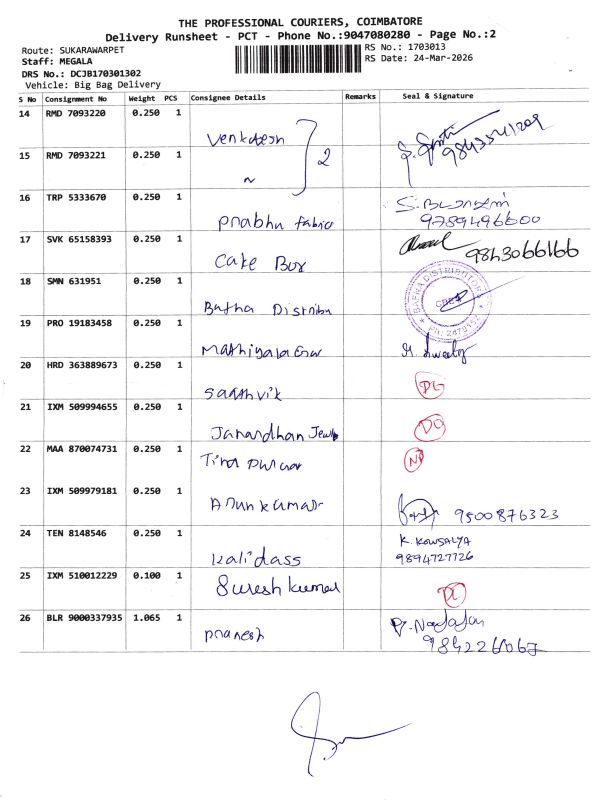 THE PROFESSIONAL COURIERS, COIMBATORE
Delivery Runsheet - PCT - Phone No.:9047080280 - Page No.:2
Route: SUKARAWARPET
RS No.: 1703013
Staff: MEGALA
RS Date: 24-Mar-2026
DRS No.: DCJB170301302
Vehicle: Big Bag Delivery
S No Consignment No Weight PCS Consignee Details Remarks Seal & Signature
14 RMD 7093220 0.250 1 Venkatesh 2
15 RMD 7093221 0.250 1 ~
16 TRP 5333670 0.250 1 Prabhu fabric 9789496600
17 SVK 65158393 0.250 1 Cake Box 9843066166
18 SMN 631951 0.250 1 BAFRA DISTRIBUTORS CBE Ph: 2479152
19 PRO 19183458 0.250 1
20 HRD 363889673 0.250 1 Santhvik DL
21 IXM 509994655 0.250 1 Janardhan Jewl
22 MAA 870074731 0.250 1
23 IXM 509979181 0.250 1 Arun kumar 9500876323
24 TEN 8148546 0.250 1 Kalidass K. KOWSALYA
9894727726
25 IXM 510012229 0.100 1 Suresh kumar
26 BLR 9000337935 1.065 1 Pranesh